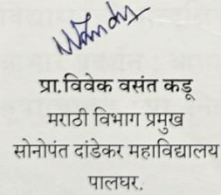 प्रा.विवेक वसंत कडू
मराठी विभाग प्रमुख
सोनोपंत दांडेकर महाविद्यालय
पालघर.